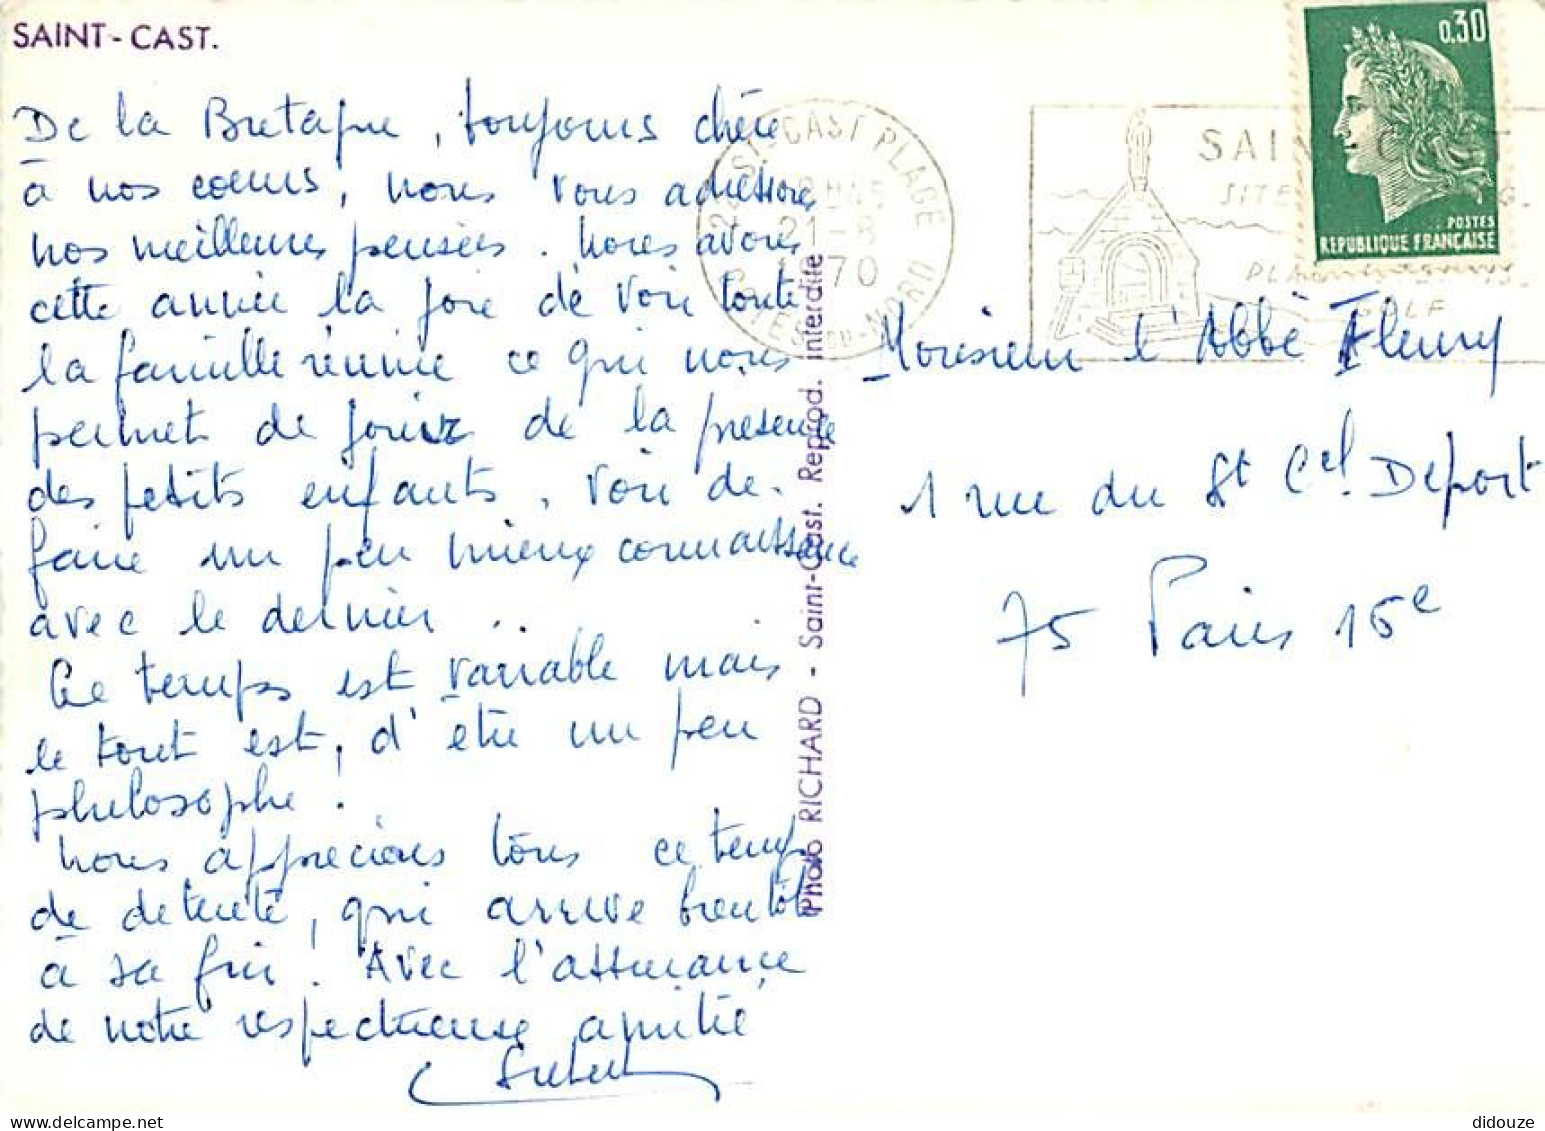 SAINT-CAST.
De la Bretagne, toujours chère
à nos coeurs, nous vous adressons
nos meilleures pensées. Nous avons
cette année la joie de voir toute
la famille réunie ce qui nous
permet de jouir de la présence
des petits enfants, voir de
faire un peu mieux connaissance
avec le dernier ..
Le temps est variable mais
le tout est, d'être un peu
philosophe !
Nous apprécions tous ce temps
de detente, qui arrive bientôt
à sa fin ! Avec l'assurance
de notre respectueuse amitié
Photo RICHARD - Saint-Cast. Reprod. interdite
22 ST-CAST PLAGE
18H45
21-8
1970
COTES-DU-NORD
SAINT CAST
SITE
PLAGE
GOLF
0,30
POSTES
REPUBLIQUE FRANÇAISE
Monsieur l'Abbé Fleury
1 rue du Lt Cel Deport
75 Paris 16e
didouze @ delcampe.net